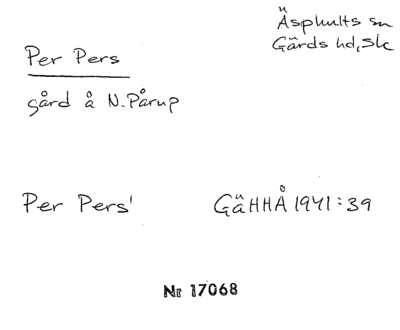 Äsphults sn
Gärds hd, Sk
Per Pers
gård å N. Pårup
Per Pers'
GäHHÅ 1941:39
Nr 17068